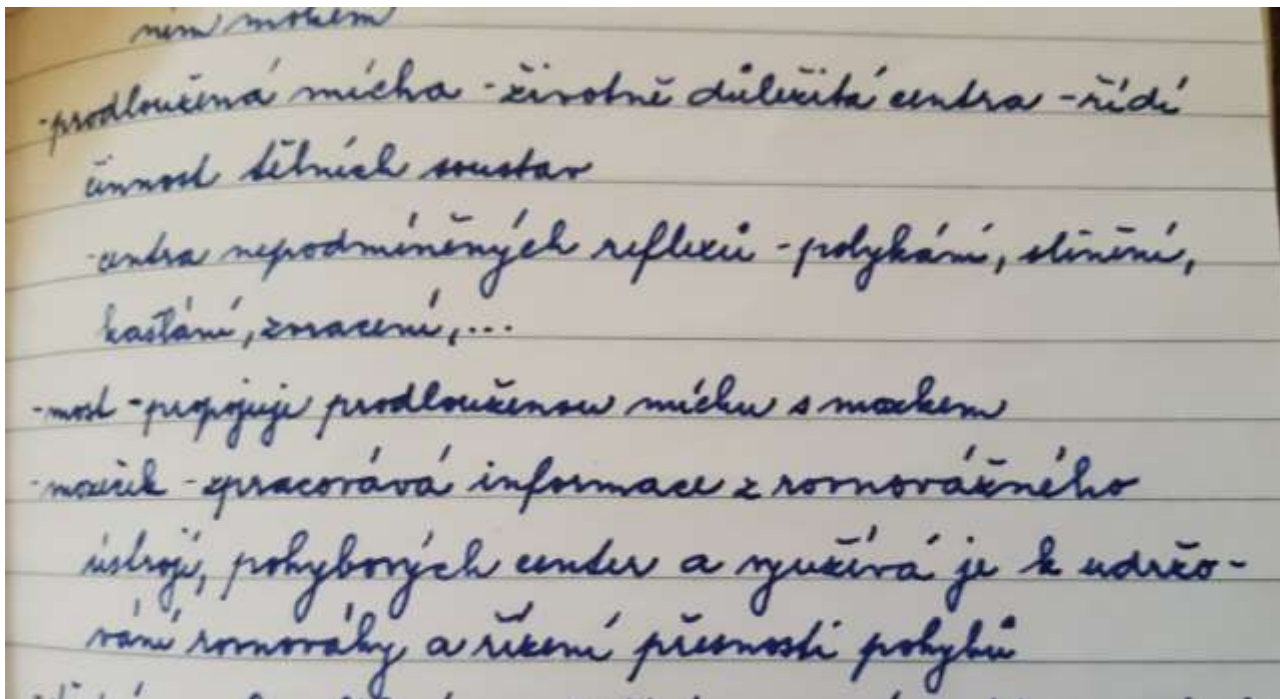 ním mokem
-prodloužená mícha - životně důležitá centra - řídí
činnost tělních soustav
-centra nepodmíněných reflexů - polykání, slinění,
kašlání, zvracení,...
-most - propojuje prodlouženou míchu s mozkem
-mozeček - zpracovává informace z rovnovážného
ústrojí, pohybových center a využívá je k udržo-
vání rovnováhy a řízení přesnosti pohybů